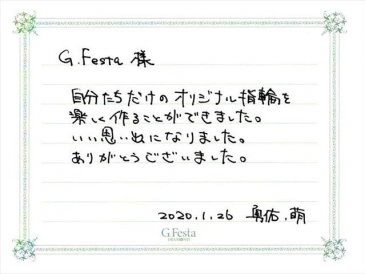 G.Festa 様
自分たちだけのオリジナル指輪を
楽しく作ることができました。
いい思い出になりました。
ありがとうございました。
2020.1.26 勇佑、萌
G.Festa
DIAMOND